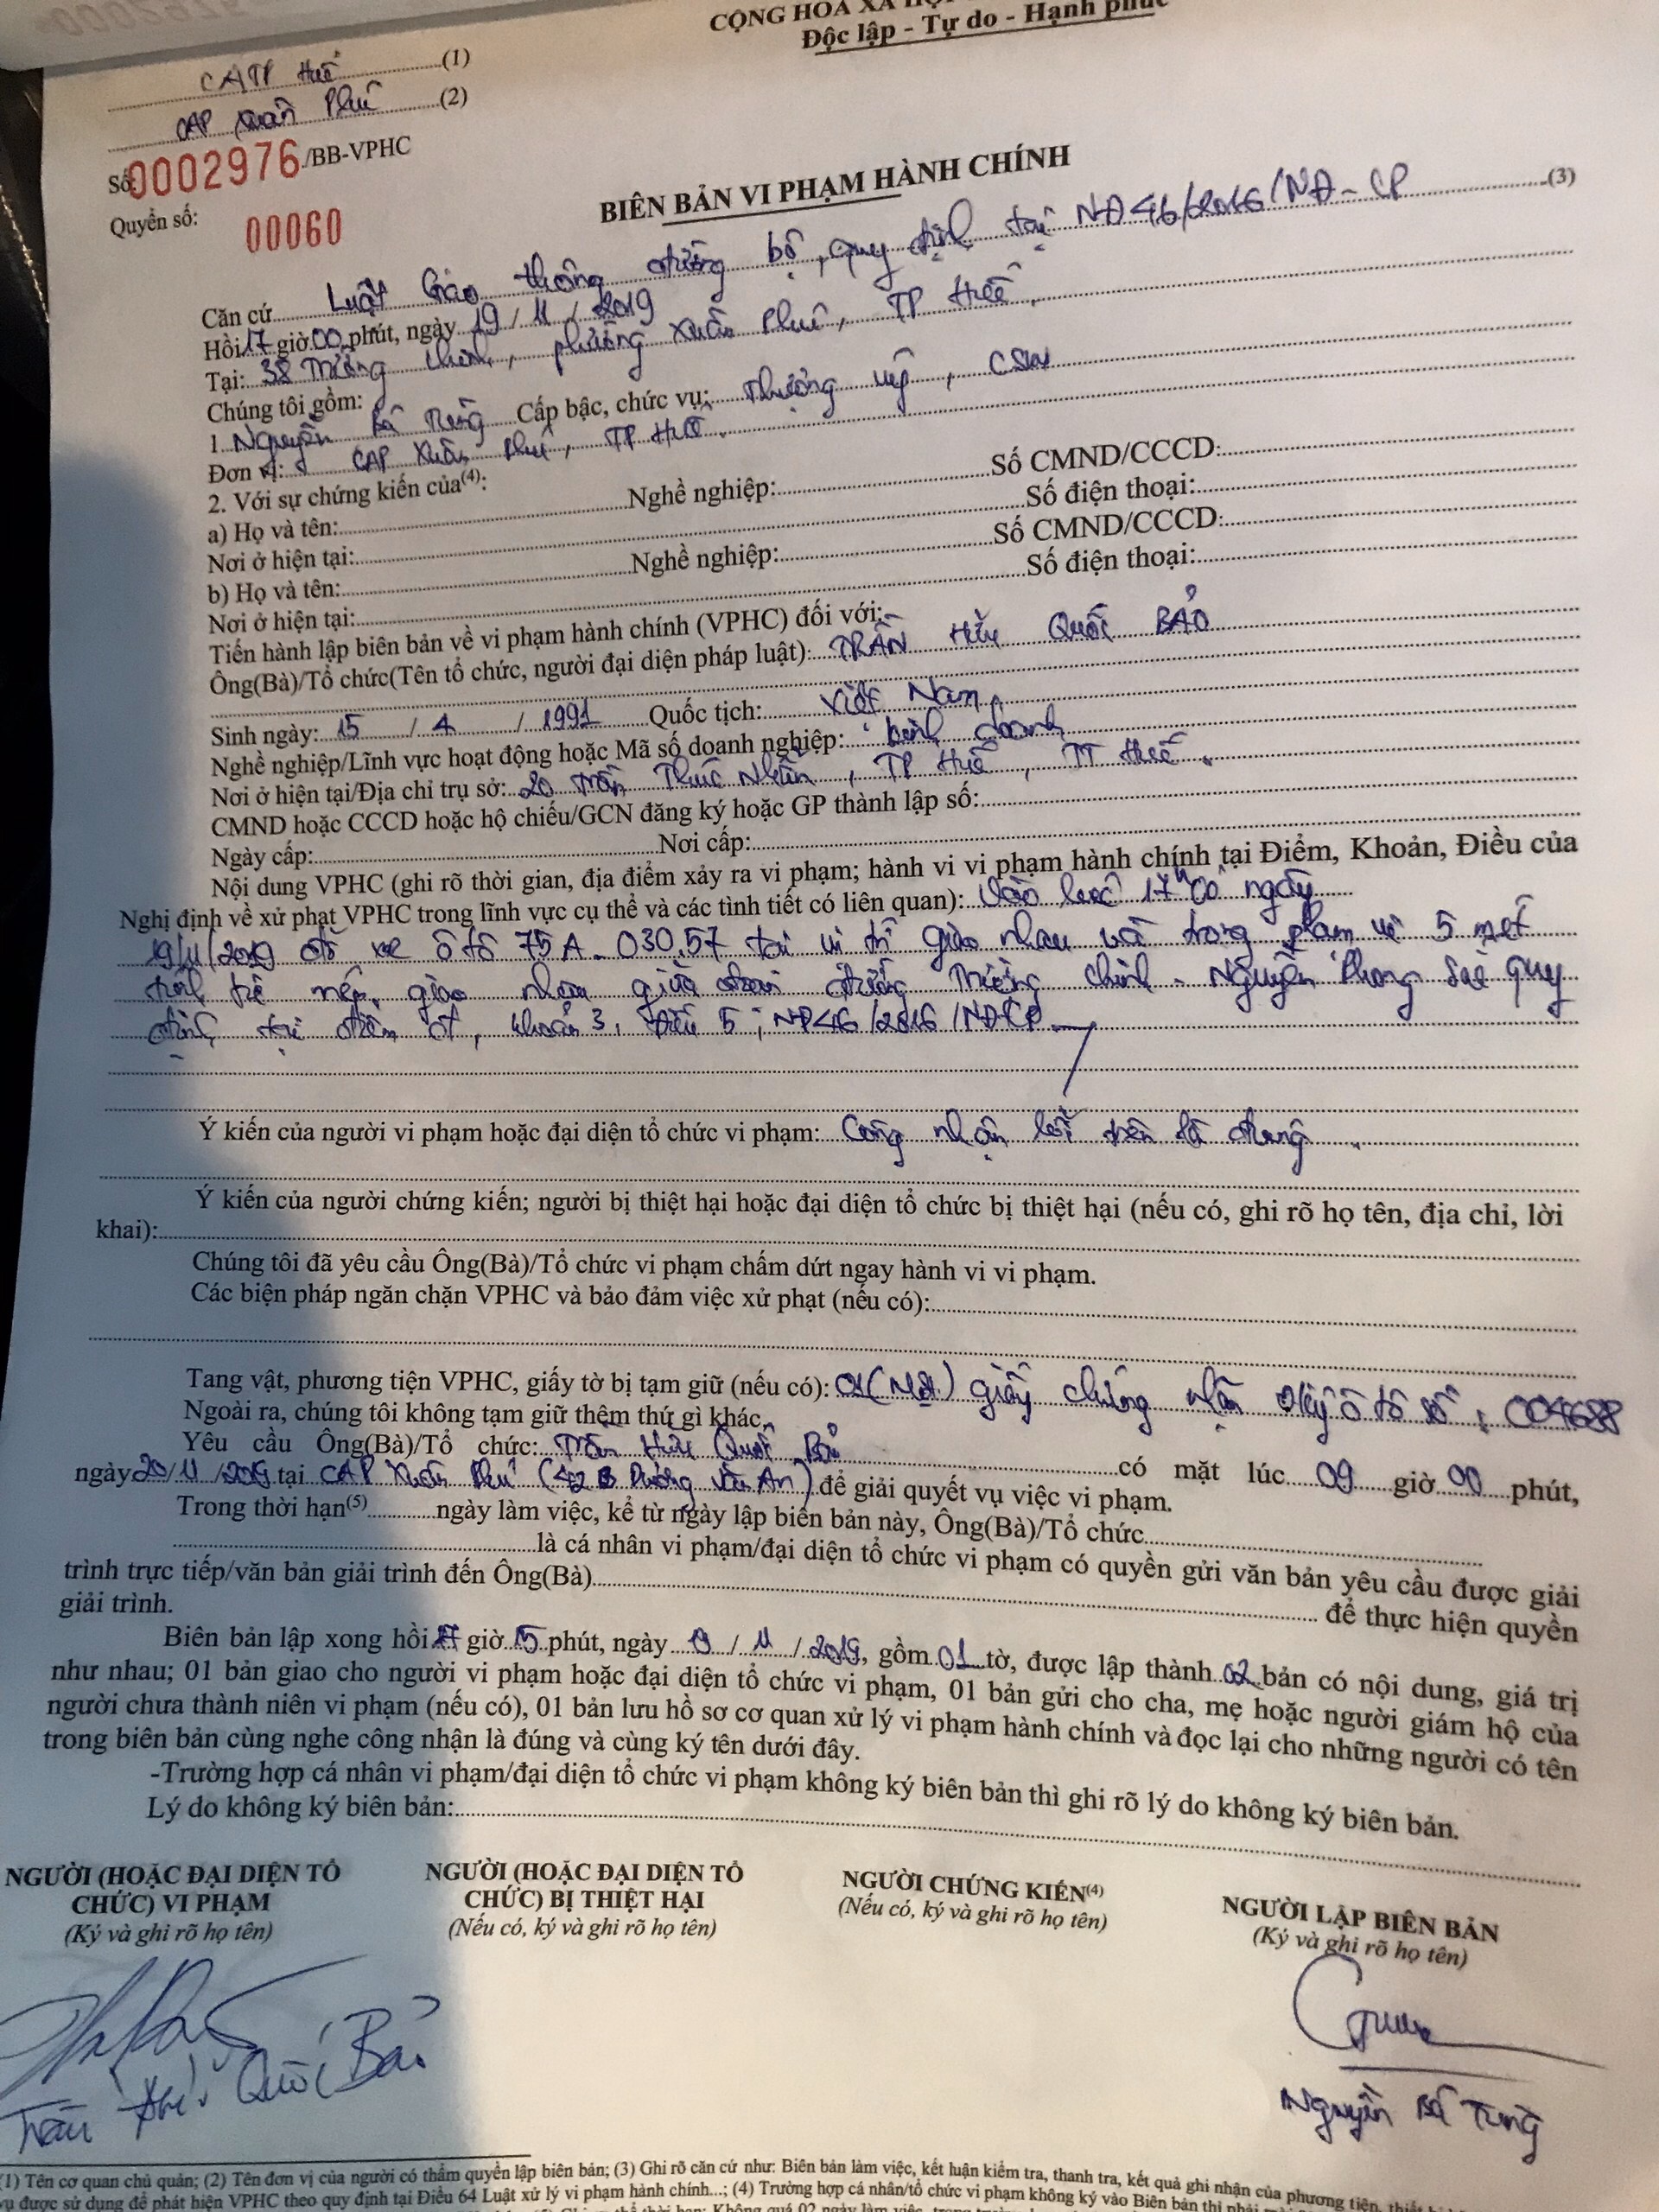 CỘNG HÒA XÃ HỘI
Độc lập - Tự do - Hạnh phúc
CATP Huế (1)
CAP Xuân Phú (2)
Số: 0002976 /BB-VPHC
Quyển số: 00060
BIÊN BẢN VI PHẠM HÀNH CHÍNH
Căn cứ Luật Giao thông đường bộ, quy định tại NĐ46/2016/NĐ-CP (3)
Hồi 17 giờ 00 phút, ngày 19/11/2019
Tại: 38 Trường Chinh, phường Xuân Phú, TP Huế.
Chúng tôi gồm:
1. Nguyễn Bá Tùng Cấp bậc, chức vụ: Thượng úy, CSKV
Đơn vị: CAP Xuân Phú, TP Huế.
2. Với sự chứng kiến của(4):
a) Họ và tên: Nghề nghiệp: Số CMND/CCCD:
Nơi ở hiện tại: Số điện thoại:
b) Họ và tên: Nghề nghiệp: Số CMND/CCCD:
Nơi ở hiện tại: Số điện thoại:
Tiến hành lập biên bản về vi phạm hành chính (VPHC) đối với:
Ông(Bà)/Tổ chức(Tên tổ chức, người đại diện pháp luật): TRẦN Hữu Quốc BẢO
Sinh ngày: 15 / 4 / 1991 Quốc tịch: Việt Nam
Nghề nghiệp/Lĩnh vực hoạt động hoặc Mã số doanh nghiệp: kinh doanh
Nơi ở hiện tại/Địa chỉ trụ sở: 20 Trần Thúc Nhẫn, TP Huế, TT Huế.
CMND hoặc CCCD hoặc hộ chiếu/GCN đăng ký hoặc GP thành lập số:
Ngày cấp: Nơi cấp:
Nội dung VPHC (ghi rõ thời gian, địa điểm xảy ra vi phạm; hành vi vi phạm hành chính tại Điểm, Khoản, Điều của
Nghị định về xử phạt VPHC trong lĩnh vực cụ thể và các tình tiết có liên quan): Vào lúc 17h00 ngày
19/11/2019 đỗ xe ô tô 75A-030.57 tại vị trí giao nhau và trong phạm vi 5 mét
tính từ mép giao nhau giữa đoạn đường Trường Chinh - Nguyễn Phong Sắc quy
định tại điểm, khoản 3, Điều 5, NĐ46/2016/NĐ-CP
Ý kiến của người vi phạm hoặc đại diện tổ chức vi phạm: Công nhận lỗi trên là đúng.
Ý kiến của người chứng kiến; người bị thiệt hại hoặc đại diện tổ chức bị thiệt hại (nếu có, ghi rõ họ tên, địa chỉ, lời
khai):
Chúng tôi đã yêu cầu Ông(Bà)/Tổ chức vi phạm chấm dứt ngay hành vi vi phạm.
Các biện pháp ngăn chặn VPHC và bảo đảm việc xử phạt (nếu có):
Tang vật, phương tiện VPHC, giấy tờ bị tạm giữ (nếu có): 01 (Một) giấy chứng nhận đký ô tô số: 004688
Ngoài ra, chúng tôi không tạm giữ thêm thứ gì khác.
Yêu cầu Ông(Bà)/Tổ chức: Trần Hữu Quốc Bảo có mặt lúc 09 giờ 00 phút,
ngày 20/11/2019 tại CAP Xuân Phú (42B Dương Văn An) để giải quyết vụ việc vi phạm.
Trong thời hạn(5) ngày làm việc, kể từ ngày lập biên bản này, Ông(Bà)/Tổ chức
là cá nhân vi phạm/đại diện tổ chức vi phạm có quyền gửi văn bản yêu cầu được giải
trình trực tiếp/văn bản giải trình đến Ông(Bà) để thực hiện quyền
giải trình.
Biên bản lập xong hồi 17 giờ 15 phút, ngày 19 / 11 / 2019, gồm 01 tờ, được lập thành 02 bản có nội dung, giá trị
như nhau; 01 bản giao cho người vi phạm hoặc đại diện tổ chức vi phạm, 01 bản gửi cho cha, mẹ hoặc người giám hộ của
người chưa thành niên vi phạm (nếu có), 01 bản lưu hồ sơ cơ quan xử lý vi phạm hành chính và đọc lại cho những người có tên
trong biên bản cùng nghe công nhận là đúng và cùng ký tên dưới đây.
-Trường hợp cá nhân vi phạm/đại diện tổ chức vi phạm không ký biên bản thì ghi rõ lý do không ký biên bản.
Lý do không ký biên bản:
NGƯỜI (HOẶC ĐẠI DIỆN TỔ CHỨC) VI PHẠM
(Ký và ghi rõ họ tên)
Trần Hữu Quốc Bảo
NGƯỜI (HOẶC ĐẠI DIỆN TỔ CHỨC) BỊ THIỆT HẠI
(Nếu có, ký và ghi rõ họ tên)
NGƯỜI CHỨNG KIẾN(4)
(Nếu có, ký và ghi rõ họ tên)
NGƯỜI LẬP BIÊN BẢN
(Ký và ghi rõ họ tên)
Nguyễn Bá Tùng
(1) Tên cơ quan chủ quản; (2) Tên đơn vị của người có thẩm quyền lập biên bản; (3) Ghi rõ căn cứ như: Biên bản làm việc, kết luận kiểm tra, thanh tra, kết quả ghi nhận của phương tiện, thiết bị
vụ được sử dụng để phát hiện VPHC theo quy định tại Điều 64 Luật xử lý vi phạm hành chính...; (4) Trường hợp cá nhân/tổ chức vi phạm không ký vào Biên bản thì phải